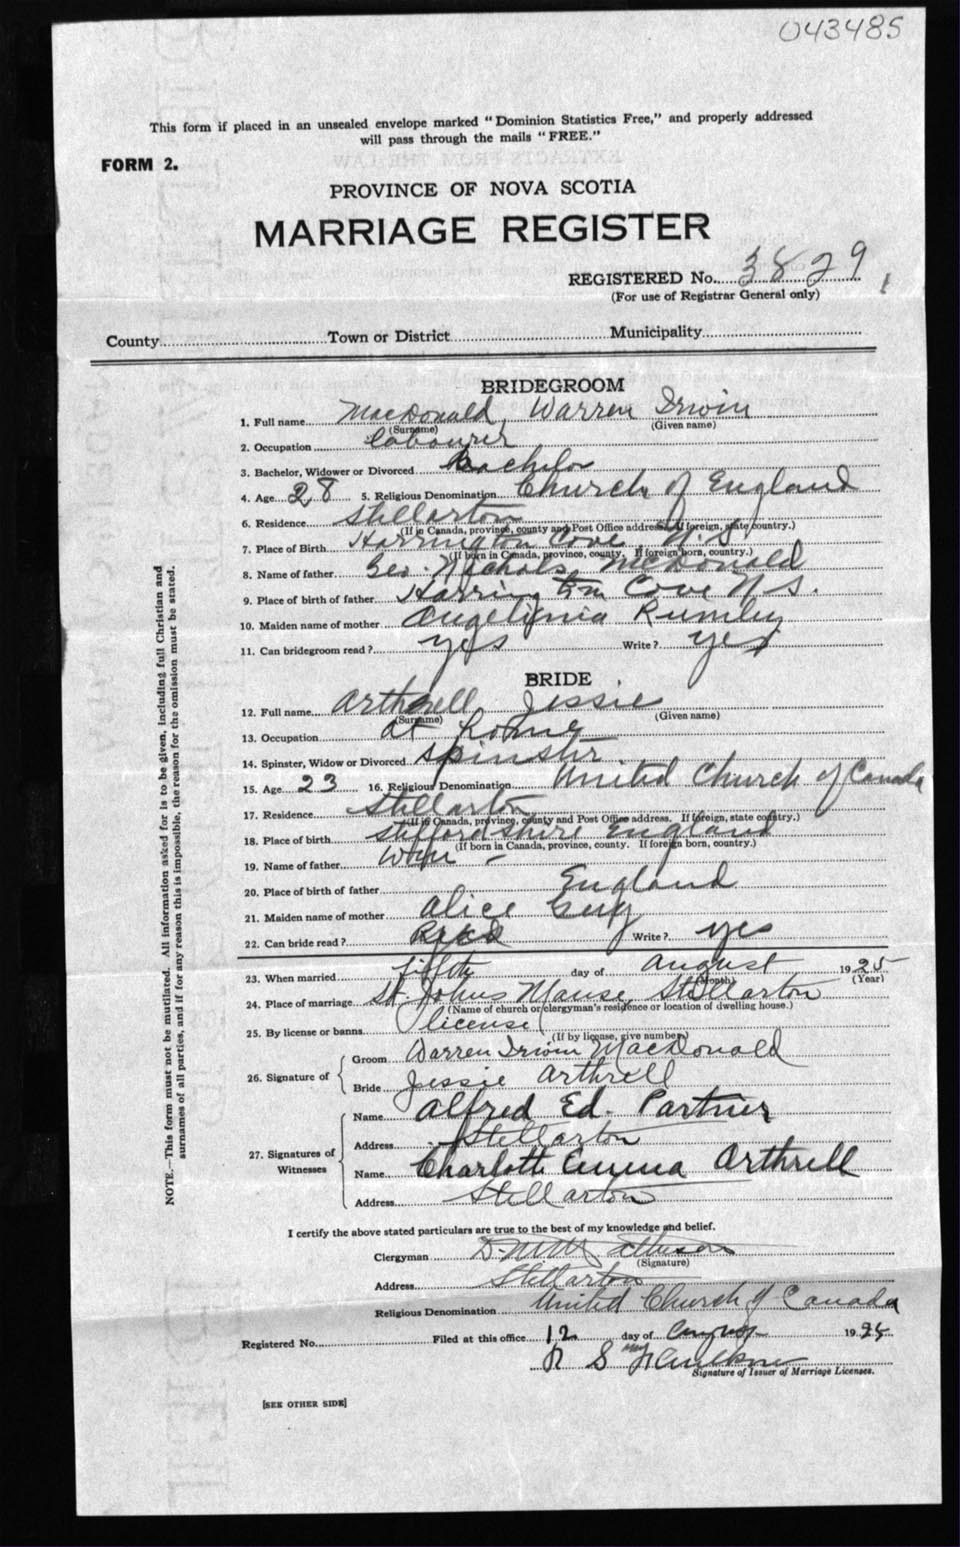 043485
This form if placed in an unsealed envelope marked "Dominion Statistics Free," and properly addressed
will pass through the mails "FREE."
FORM 2.
PROVINCE OF NOVA SCOTIA
MARRIAGE REGISTER
REGISTERED No. 3829
(For use of Registrar General only)
County Town or District Municipality
BRIDEGROOM
1. Full name MacDonald Warren Irwin
(Surname) (Given name)
2. Occupation labourer
3. Bachelor, Widower or Divorced Bachelor
4. Age 28 5. Religious Denomination Church of England
6. Residence Stellarton
(If in Canada, province, county and Post Office address. If foreign, state country.)
7. Place of Birth Harrington Cove N.S.
(If born in Canada, province, county. If foreign born, country.)
8. Name of father Geo. Nichols McDonald
9. Place of birth of father Harrington Cove N S.
10. Maiden name of mother Rumley
11. Can bridegroom read? yes Write? yes
BRIDE
12. Full name Arthrell Jessie
(Surname) (Given name)
13. Occupation at home
14. Spinster, Widow or Divorced Spinster
15. Age 23 16. Religious Denomination United Church of Canada
17. Residence Stellarton
(If in Canada, province, county and Post Office address. If foreign, state country.)
18. Place of birth Steffordshire England
(If born in Canada, province, county. If foreign born, country.)
19. Name of father Wm -
20. Place of birth of father England
21. Maiden name of mother Alice Guy
22. Can bride read? Write? yes
23. When married fifth day of August 1925
(Month) (Year)
24. Place of marriage St. Johns Manse, Stellarton
(Name of church or clergyman's residence or location of dwelling house.)
25. By license or banns license
(If by license, give number)
26. Signature of
Groom Warren Irwin MacDonald
Bride Jessie Arthrell
27. Signatures of Witnesses
Name Alfred Ed. Partner
Address Stellarton
Name Charlotte Emma Arthrell
Address Stellarton
I certify the above stated particulars are true to the best of my knowledge and belief.
Clergyman
(Signature)
Address Stellarton
Religious Denomination United Church of Canada
Registered No. Filed at this office 12 day of 19
Signature of Issuer of Marriage Licenses.
[SEE OTHER SIDE]
NOTE.—This form must not be mutilated. All information asked for is to be given, including full Christian and
surnames of all parties, and if for any reason this is impossible, the reason for the omission must be stated.